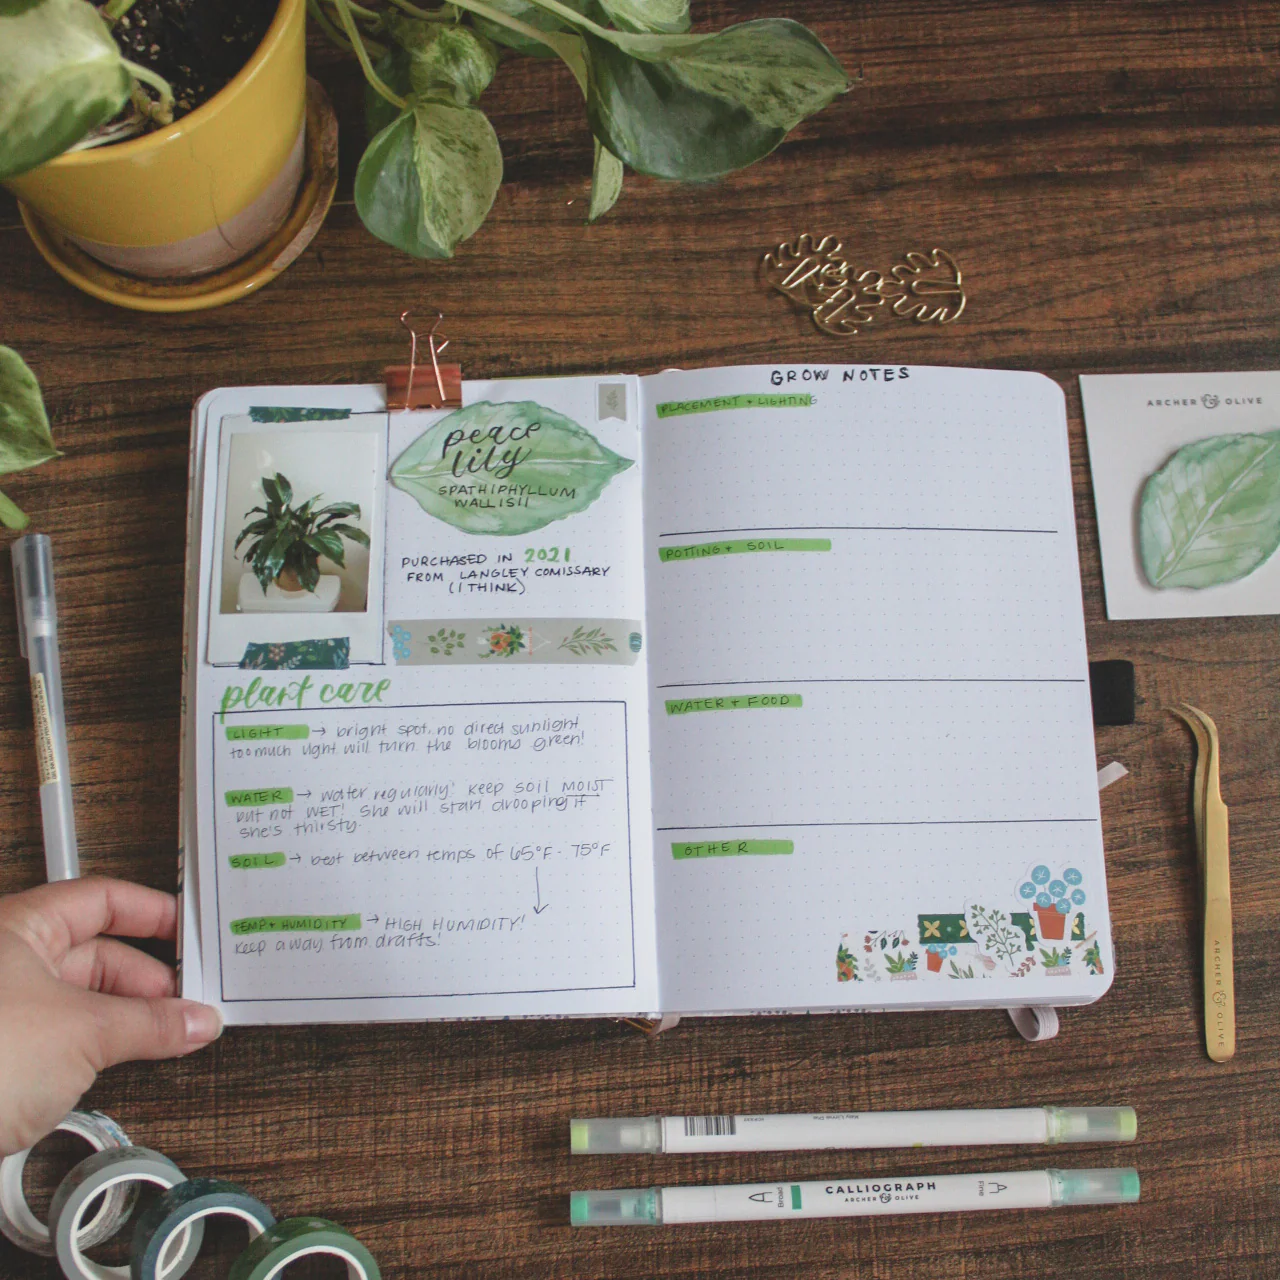 peace
lily
SPATHIPHYLLUM
WALLISII
PURCHASED IN 2021
FROM LANGLEY COMISSARY
(I THINK)
plant care
LIGHT → bright spot, no direct sunlight
too much light will turn the blooms green!
WATER → water regularly! keep soil MOIST
but not WET! She will start drooping if
she's thirsty.
SOIL → best between temps of 65°F - 75°F
TEMP + HUMIDITY → HIGH HUMIDITY!
keep away from drafts!
GROW NOTES
PLACEMENT + LIGHTING
POTTING + SOIL
WATER + FOOD
OTHER
ARCHER OLIVE
ARCHER OLIVE
Broad
CALLIOGRAPH
ARCHER OLIVE
Fine